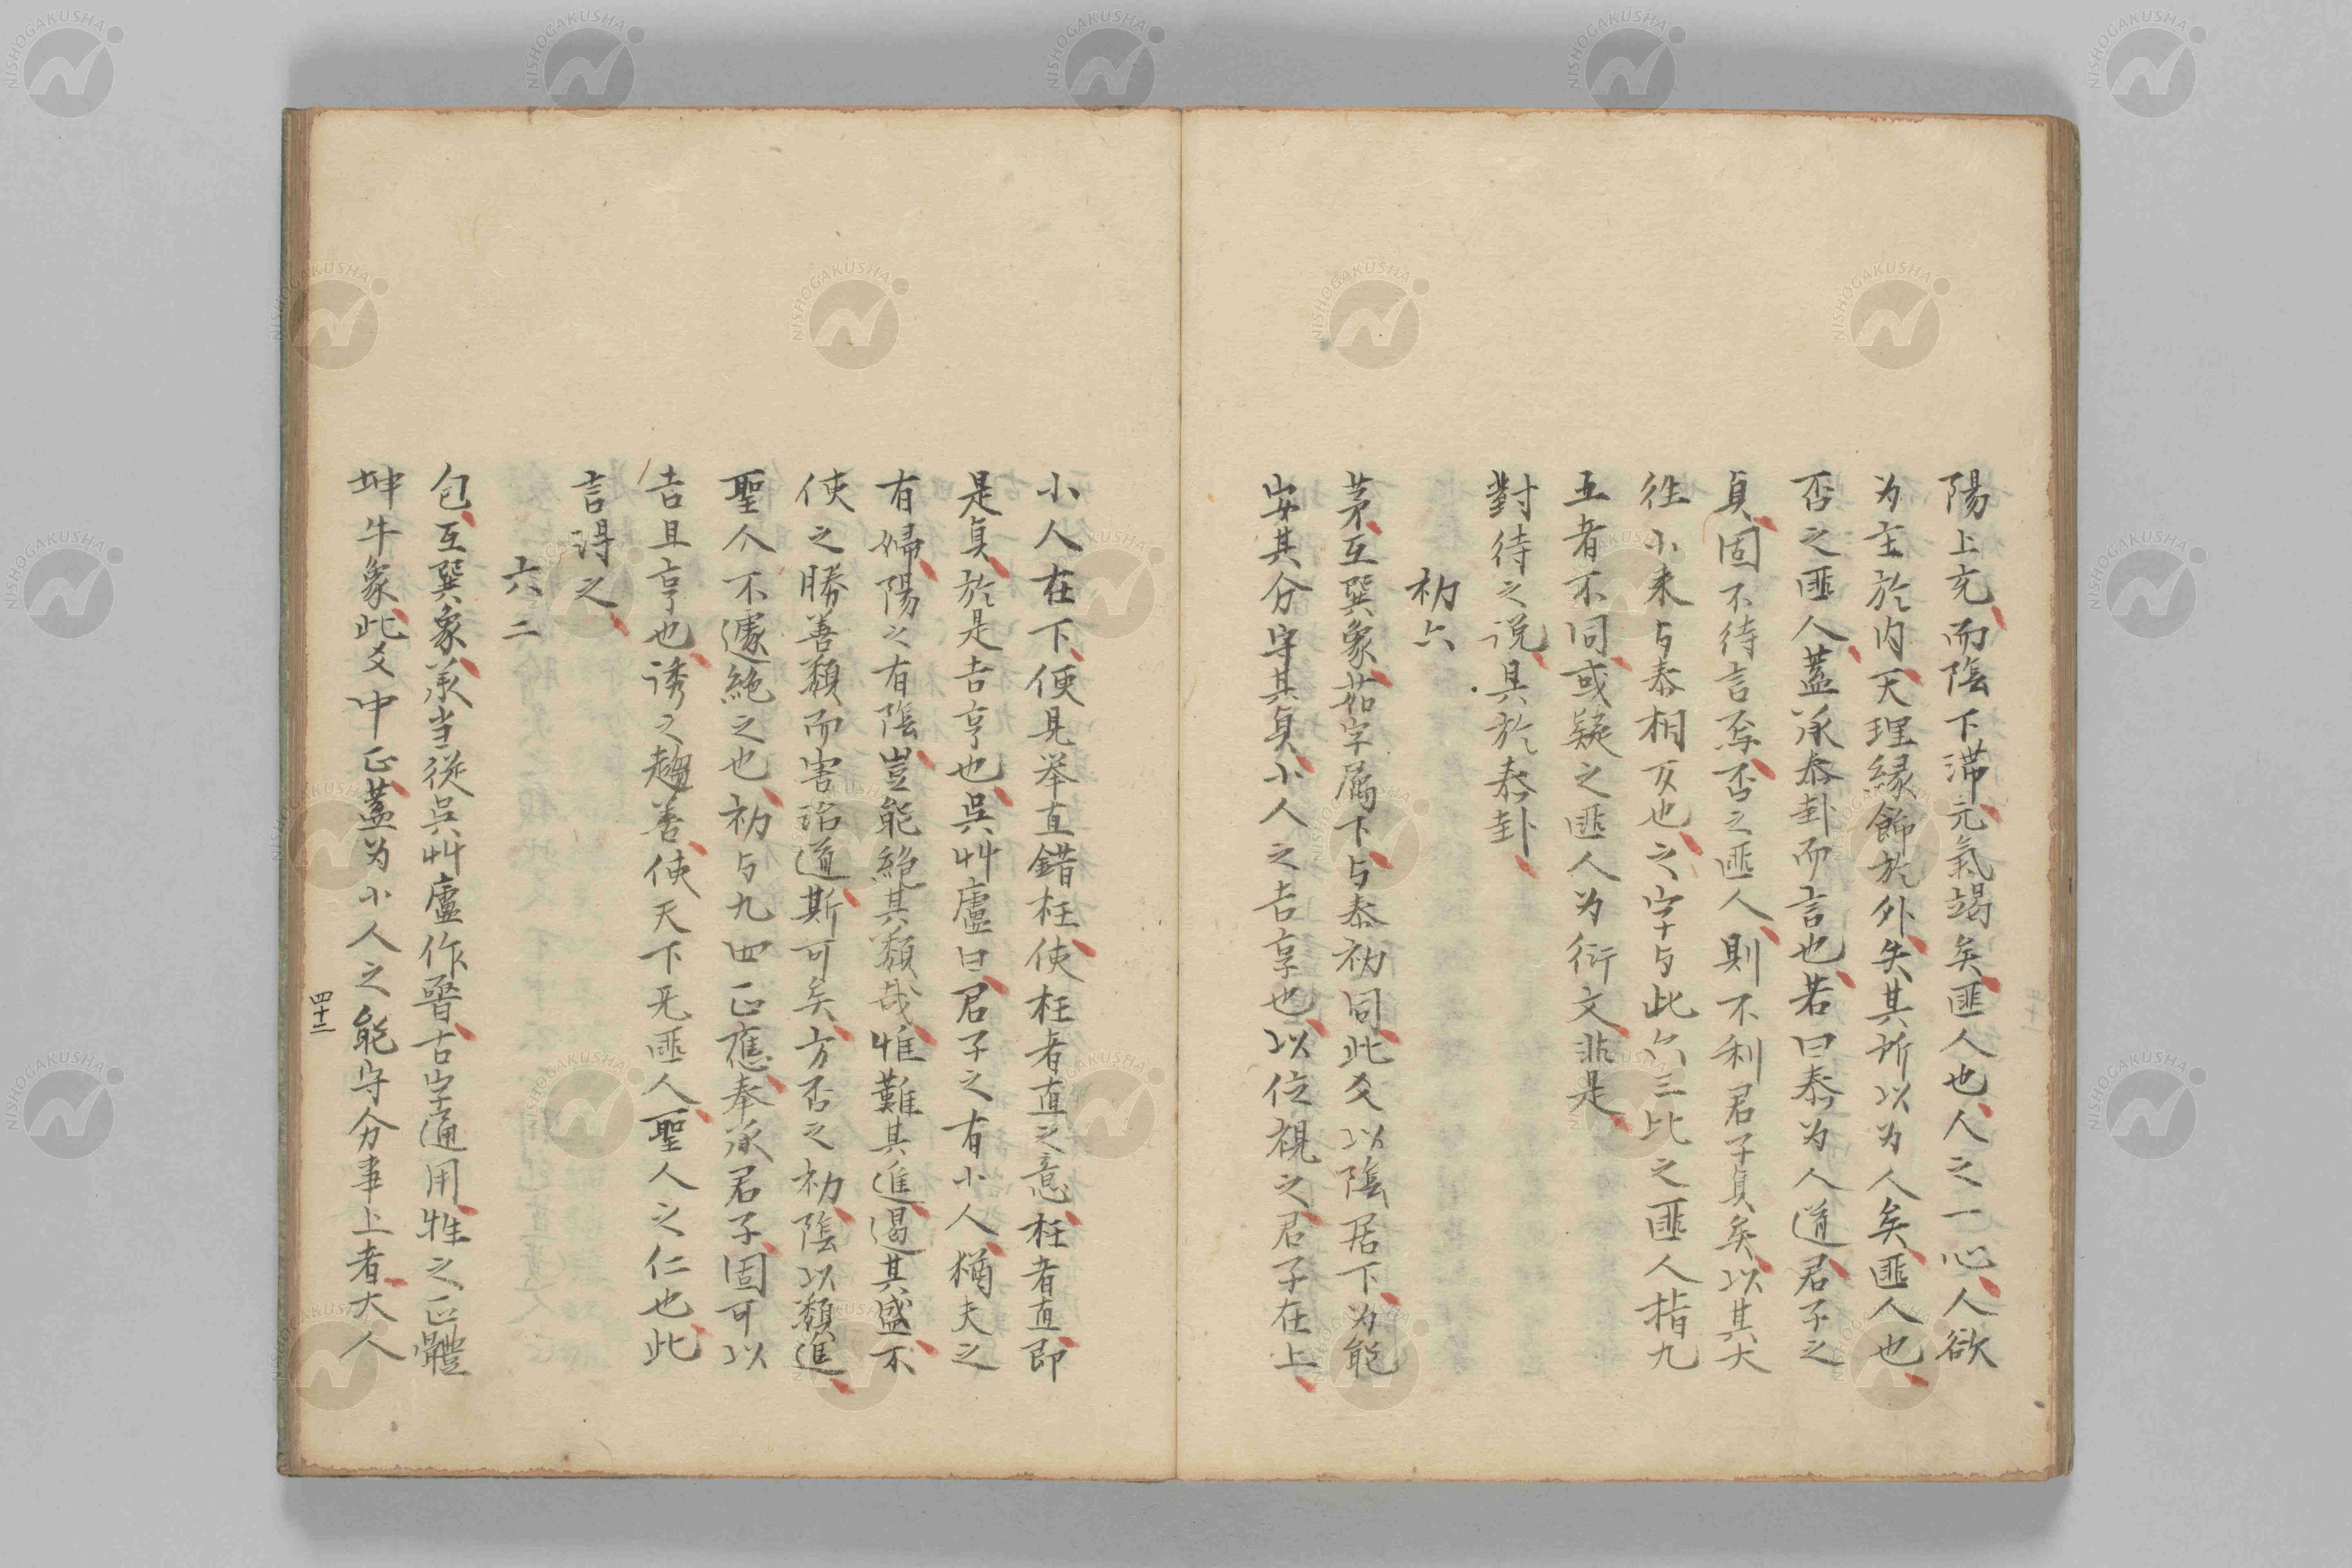 陽上亢而陰下滯元氣竭矣匪人也人之一心人欲
为主於内天理縁飾於外失其所以为人矣匪人也
否之匪人蓋承泰卦而言也若曰泰为人道君子之
貞固不待言至否之匪人則不利君子貞矣以其大
往小来与泰相反也之字与此六三比之匪人指九
五者不同或疑之匪人为衍文非是
對待之说具於泰卦
初六
茅互巽象茹字属下与泰初同此爻以陰居下为能
安其分守其貞小人之吉享也以位視之君子在上
小人在下便見举直錯枉使枉者直之意枉者直即
是貞於是吉亨也吳艸廬曰君子之有小人猶夫之
有婦陽之有陰豈能絶其類哉惟難其進遏其盛不
使之勝善類而害治道斯可矣方否之初陰以類進
聖人不遽絶之也初与九四正應奉承君子固可以
吉且亨也诱之趨善使天下无匪人聖人之仁也此
言得之
六二
包互巽象承当從吳艸廬作晉古字通用牲之正體
坤牛象此爻中正蓋为小人之能守分事上者大人
四十二
NISHOGAKUSHA